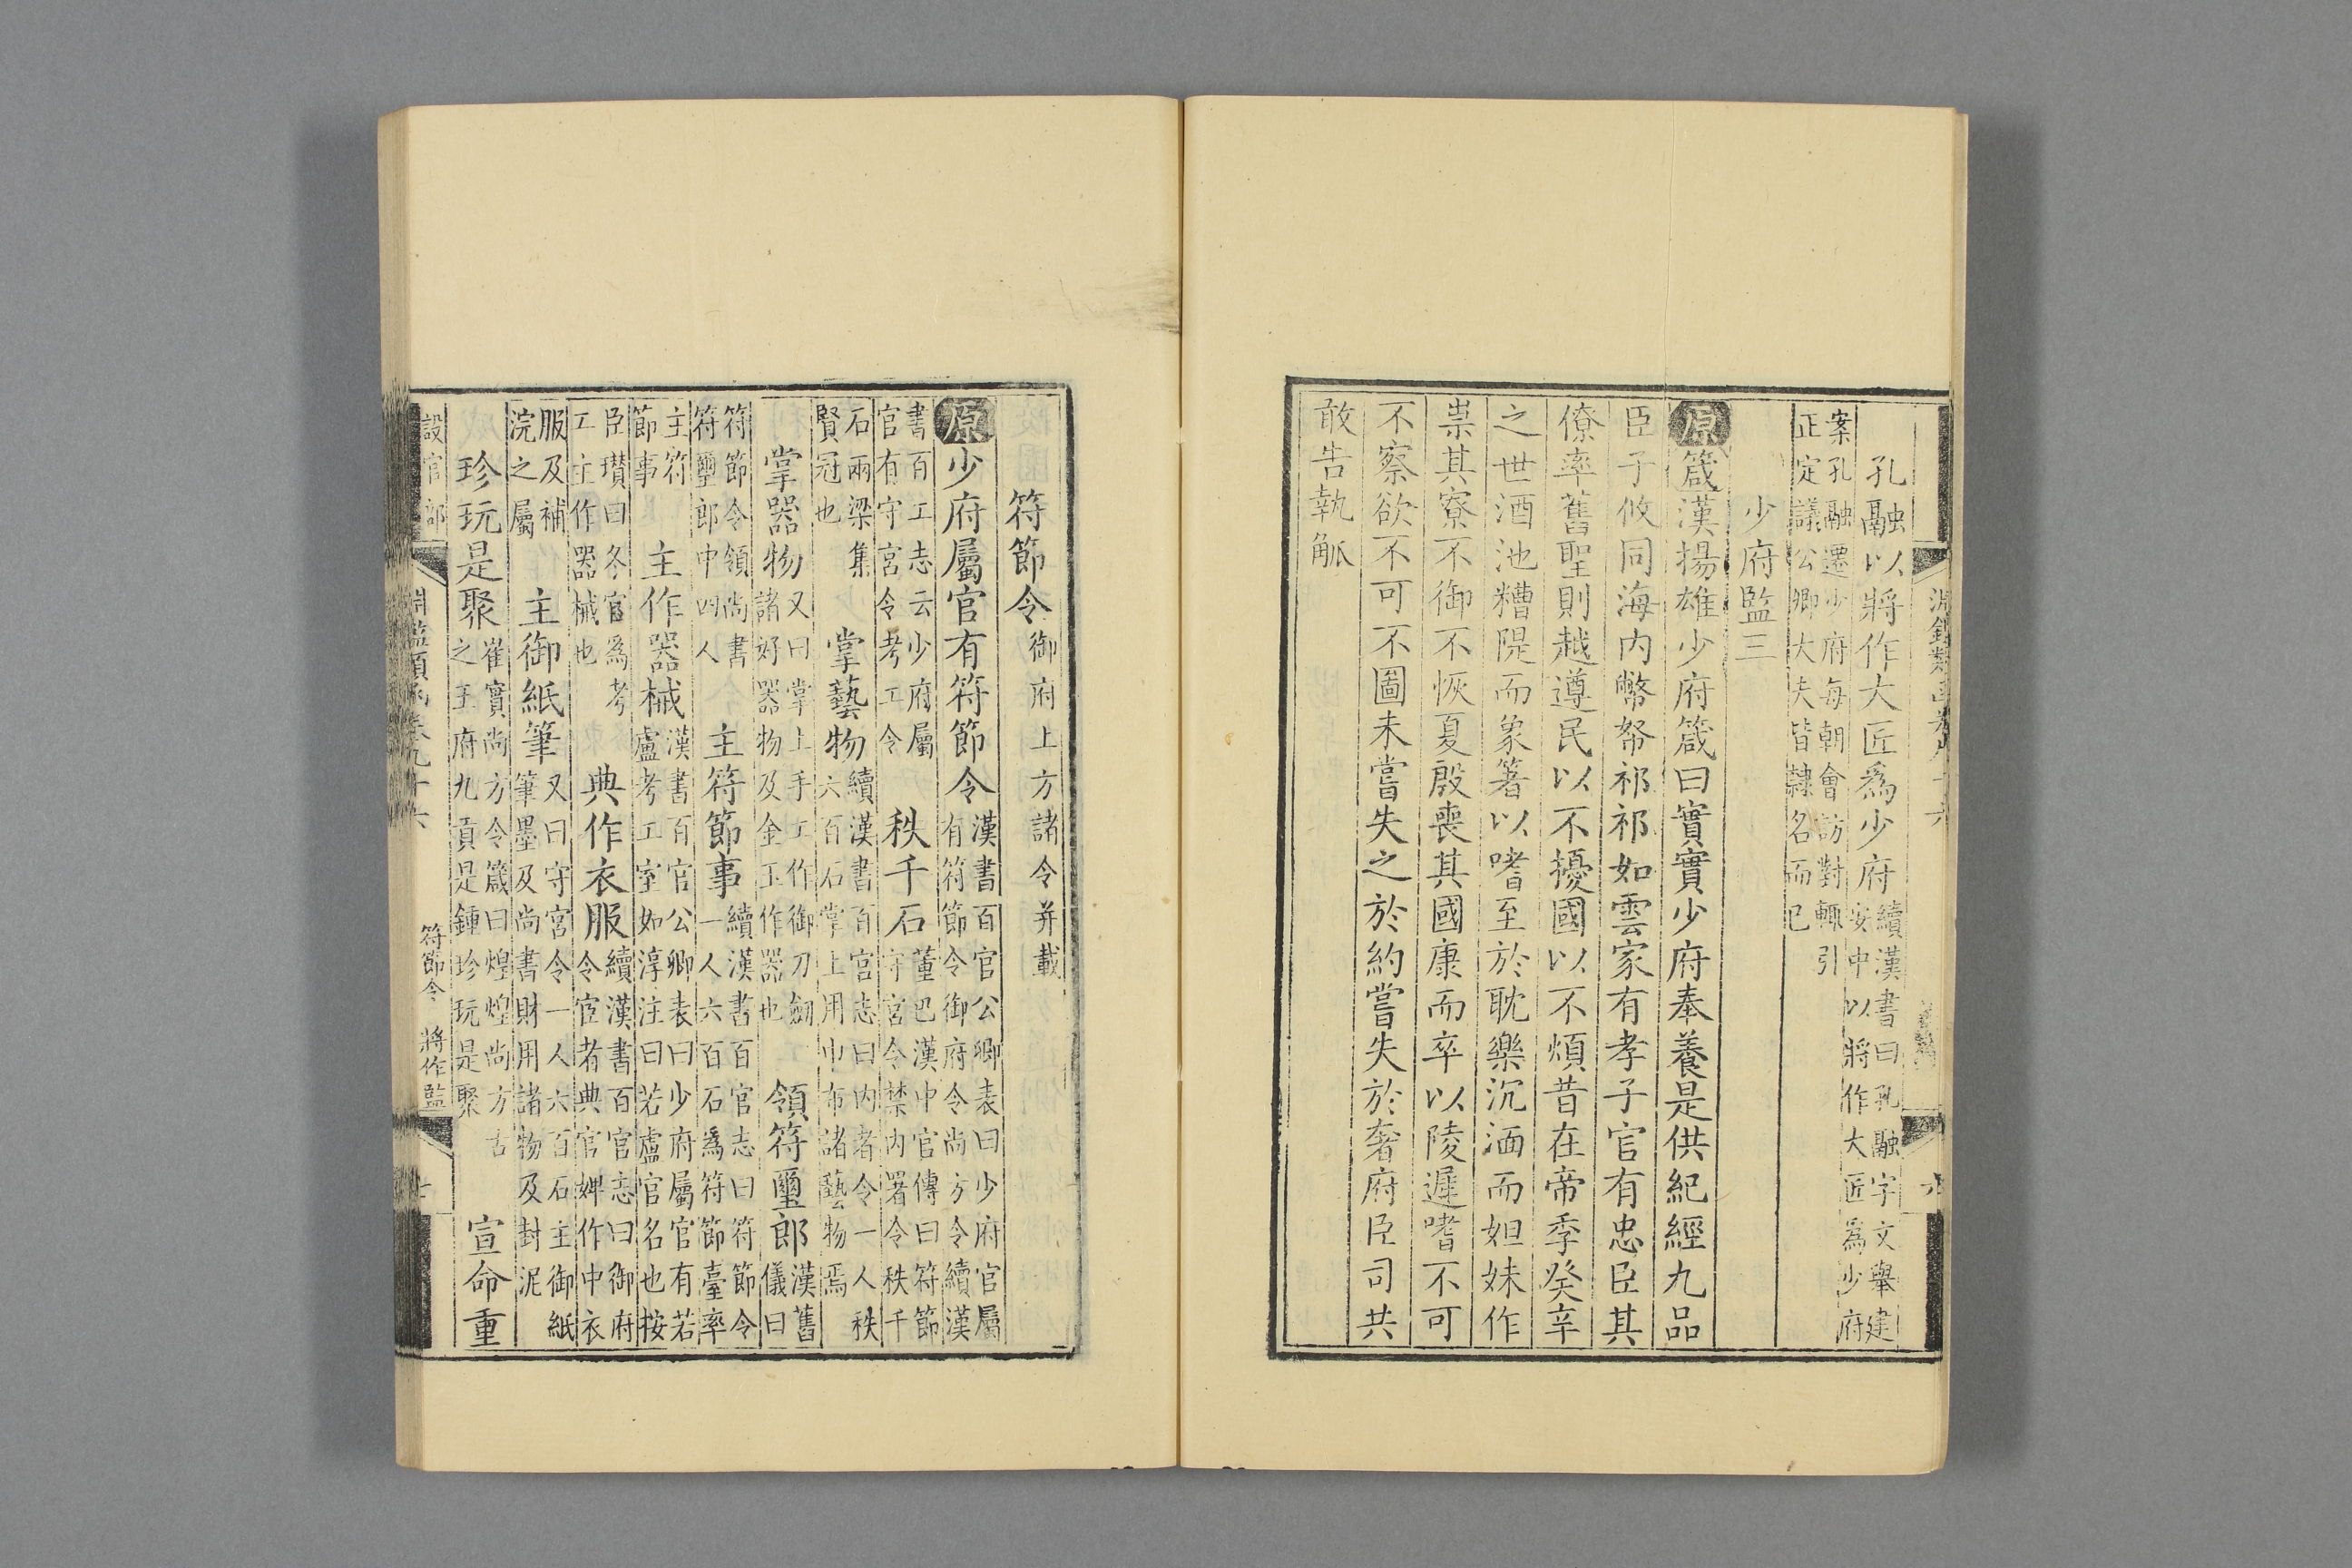 孔融以將作大匠爲少府續漢書曰孔融字文舉建安中以將作大匠爲少府
案孔融遷少府每朝會訪對輒引正定議公卿大夫皆隸名而已
少府監三
原箴漢揚雄少府箴曰實實少府奉養是供紀經九品
臣子攸同海内幣帑祁祁如雲家有孝子官有忠臣其
僚率舊聖則越遵民以不擾國以不煩昔在帝季癸辛
之世酒池糟隄而象箸以嗜至於耽樂沉湎而妲妺作
祟其寮不御不恢夏殷喪其國康而卒以陵遲嗜不可
不察欲不可不圖未嘗失之於約嘗失於奢府臣司共
敢告執觚
符節令御府上方諸令并載
原少府屬官有符節令漢書百官公卿表曰少府官屬有符節令御府令尚方令續漢
書百工志云少府屬官有守宮令考工令 秩千石董巴漢中官傳曰符節守宮令禁内署令秩千
石兩梁集賢冠也 掌藝物續漢書百官志曰内者令一人秩六百石掌上用巾布諸藝物焉
掌器物又曰掌上手工作御刀劒諸好器物及金玉作器也 領符璽郎漢舊儀曰
符節令領尚書符璽郎中四人 主符節事續漢書百官志曰符節令一人六百石爲符節臺率
主符節事 主作器械漢書百官公卿表曰少府屬官有若盧考工室如淳注曰若盧官名也按
臣瓚曰冬官爲考工主作器械也 典作衣服續漢書百官志曰御府令宦者典官婢作中衣
服及補浣之屬 主御紙筆又曰守宮令一人六百石主御紙筆墨及尚書財用諸物及封泥
珍玩是聚崔寔尚方令箴曰煌煌尚方古之王府九貢是鍾珍玩是聚 宣命重
設官部
符節令 將作監